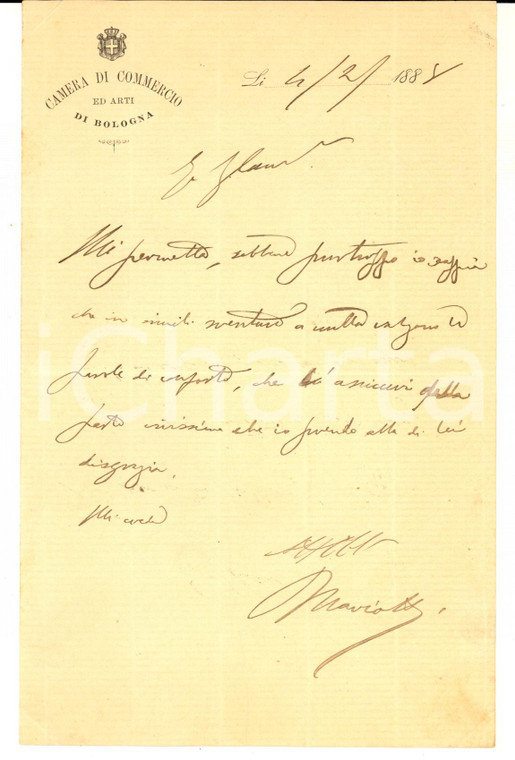 CAMERA DI COMMERCIO
ED ARTI
DI BOLOGNA
Li 4/2/ 1888
Mi permetta, sebbene purtroppo io sappia
che in simili sventure a nulla valgono le
parole di conforto, che L'assicuri della
parte vivissima che io prendo alla di Lei
disgrazia.
Mi creda
Mariotti
iCharta